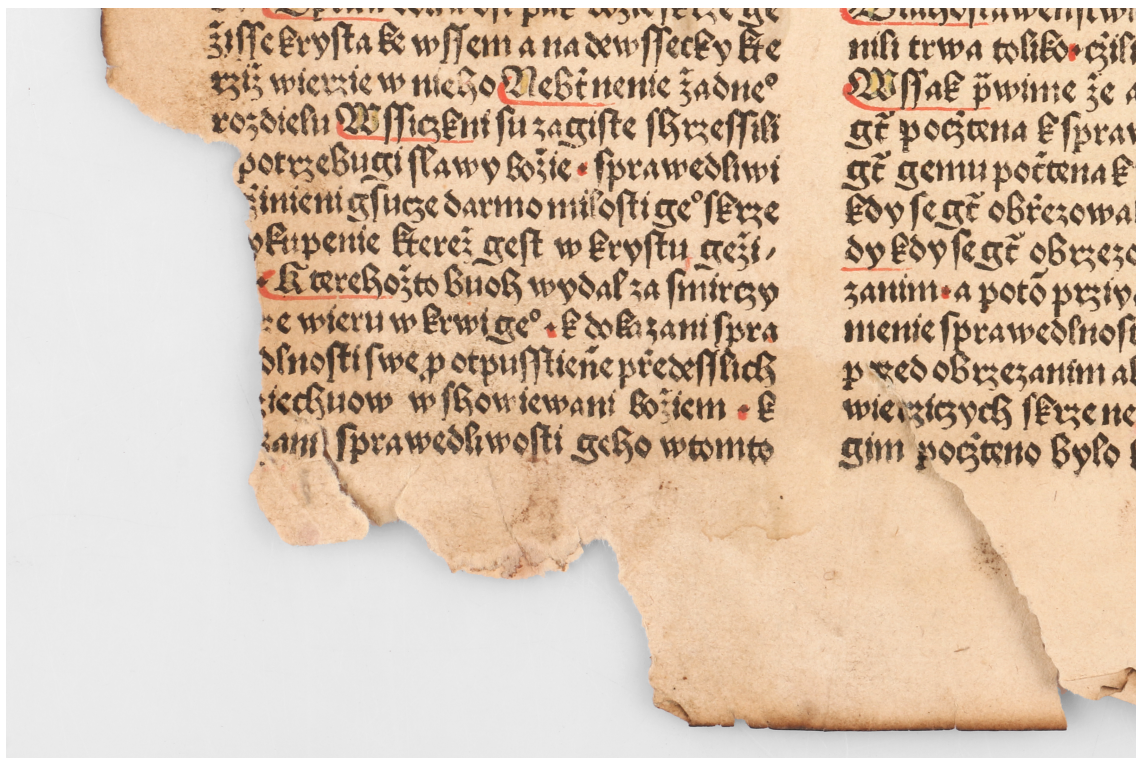 žisse krysta ke wssem a na dewssecky kte
rziž wierzie w nieho Nebt nenie žadneº
rozdielu Wssiczkni su zagiste shrzessili
potrzebugi slawy božie • sprawedliwi
žinieni gsucze darmo milosti geº skrze
ykupenie kterež gest w krystu geži⸗
• K terehožto buoh wydal za smirczy
ze wieru w krwi geº • k dokazani spra
dlnosti swe p otpusstiene předesslich
ziechuow w showiewani božiem • k
zani sprawedliwosti geho wtomto
nili trwa toliko • cžili
Wssak p̄wime že a
gt̄ pocžtena k spraw
gt̄ gemu počtena k
kdy se gt̄ obřezowa
dy kdy se gt̄ obrzezo
zanim • a potō prziy
menie sprawedlnosti
p rzed obrzezanim a
wierziczych skrze ne
gim pocžteno bylo